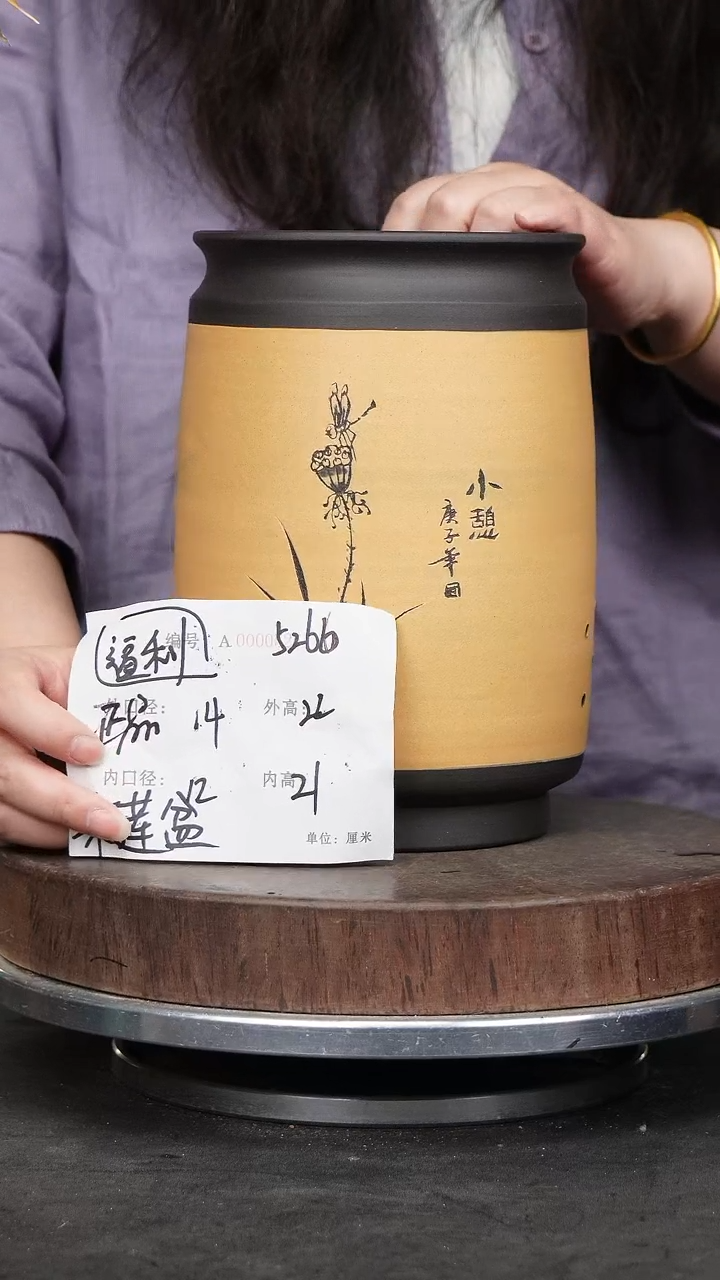 小憩
庚子年
福利 编号: A 0000 5266
外口径: 14 外高: 22
内口径: 12 内高: 21
莲盆
单位: 厘米